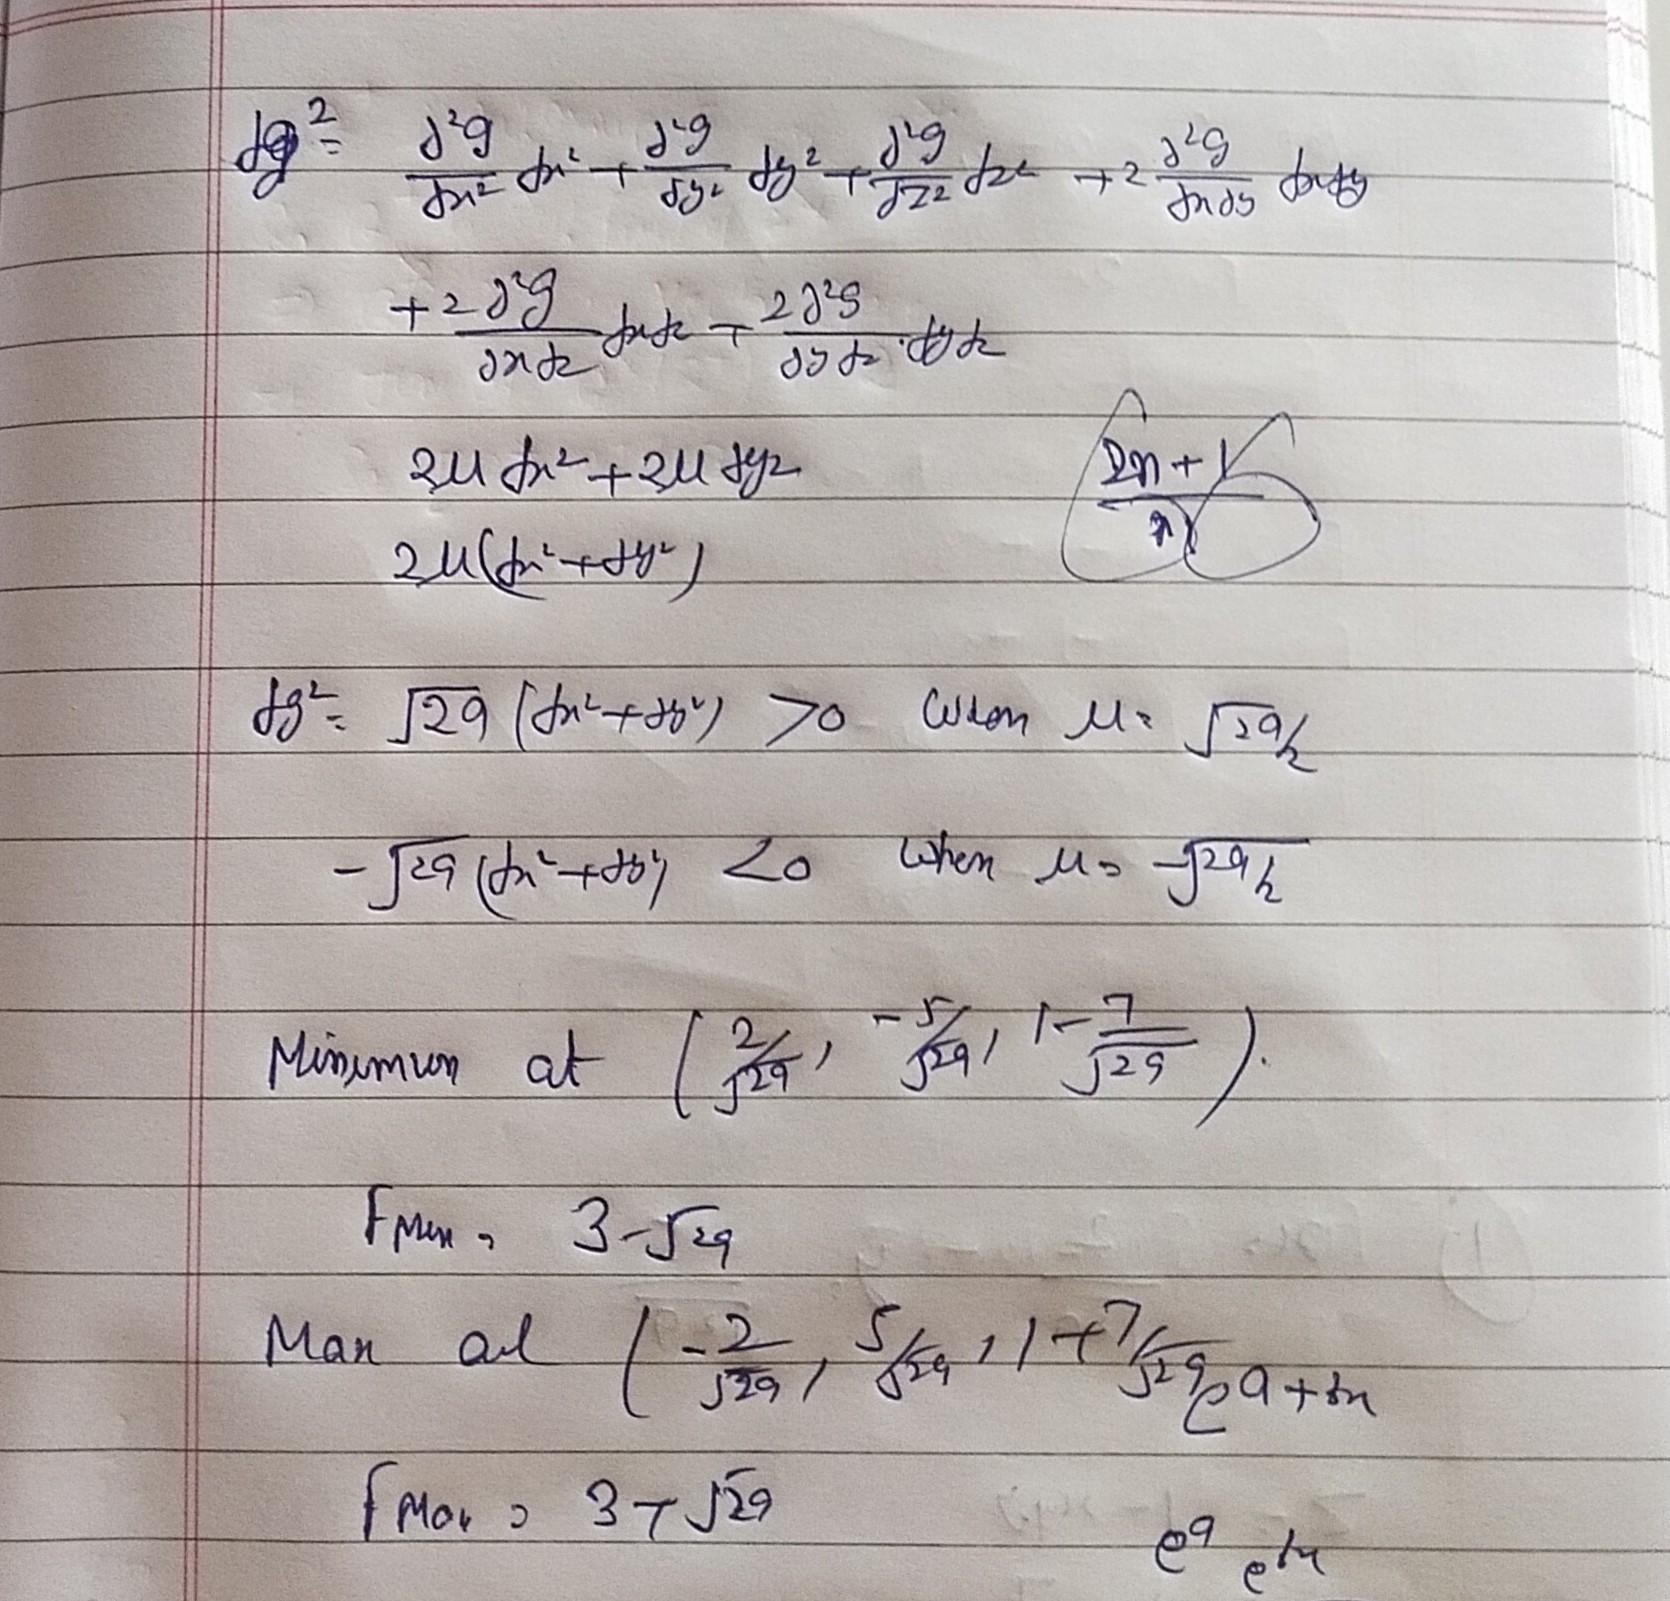 dg² = ∂²g/∂x² dx² + ∂²g/∂y² dy² + ∂²g/∂z² dz² + 2 ∂²g/∂x∂y dxdy
+ 2 ∂²g/∂x∂z dxdz + 2 ∂²g/∂y∂z · dydz
2μ dx² + 2μ dy²
2n + 1 / n
2μ(dx² + dy²)
dg² = √29 (dx² + dy²) > 0 when μ = √29/2
-√29 (dx² + dy²) < 0 when μ = -√29/2
Minimum at (2/√29, -5/√29, 1 - 7/√29).
Fmin = 3 - √29
Max at (-2/√29, 5/√29, 1 + 7/√29
e^a+bx
fMax = 3 + √29
e^a e^bx